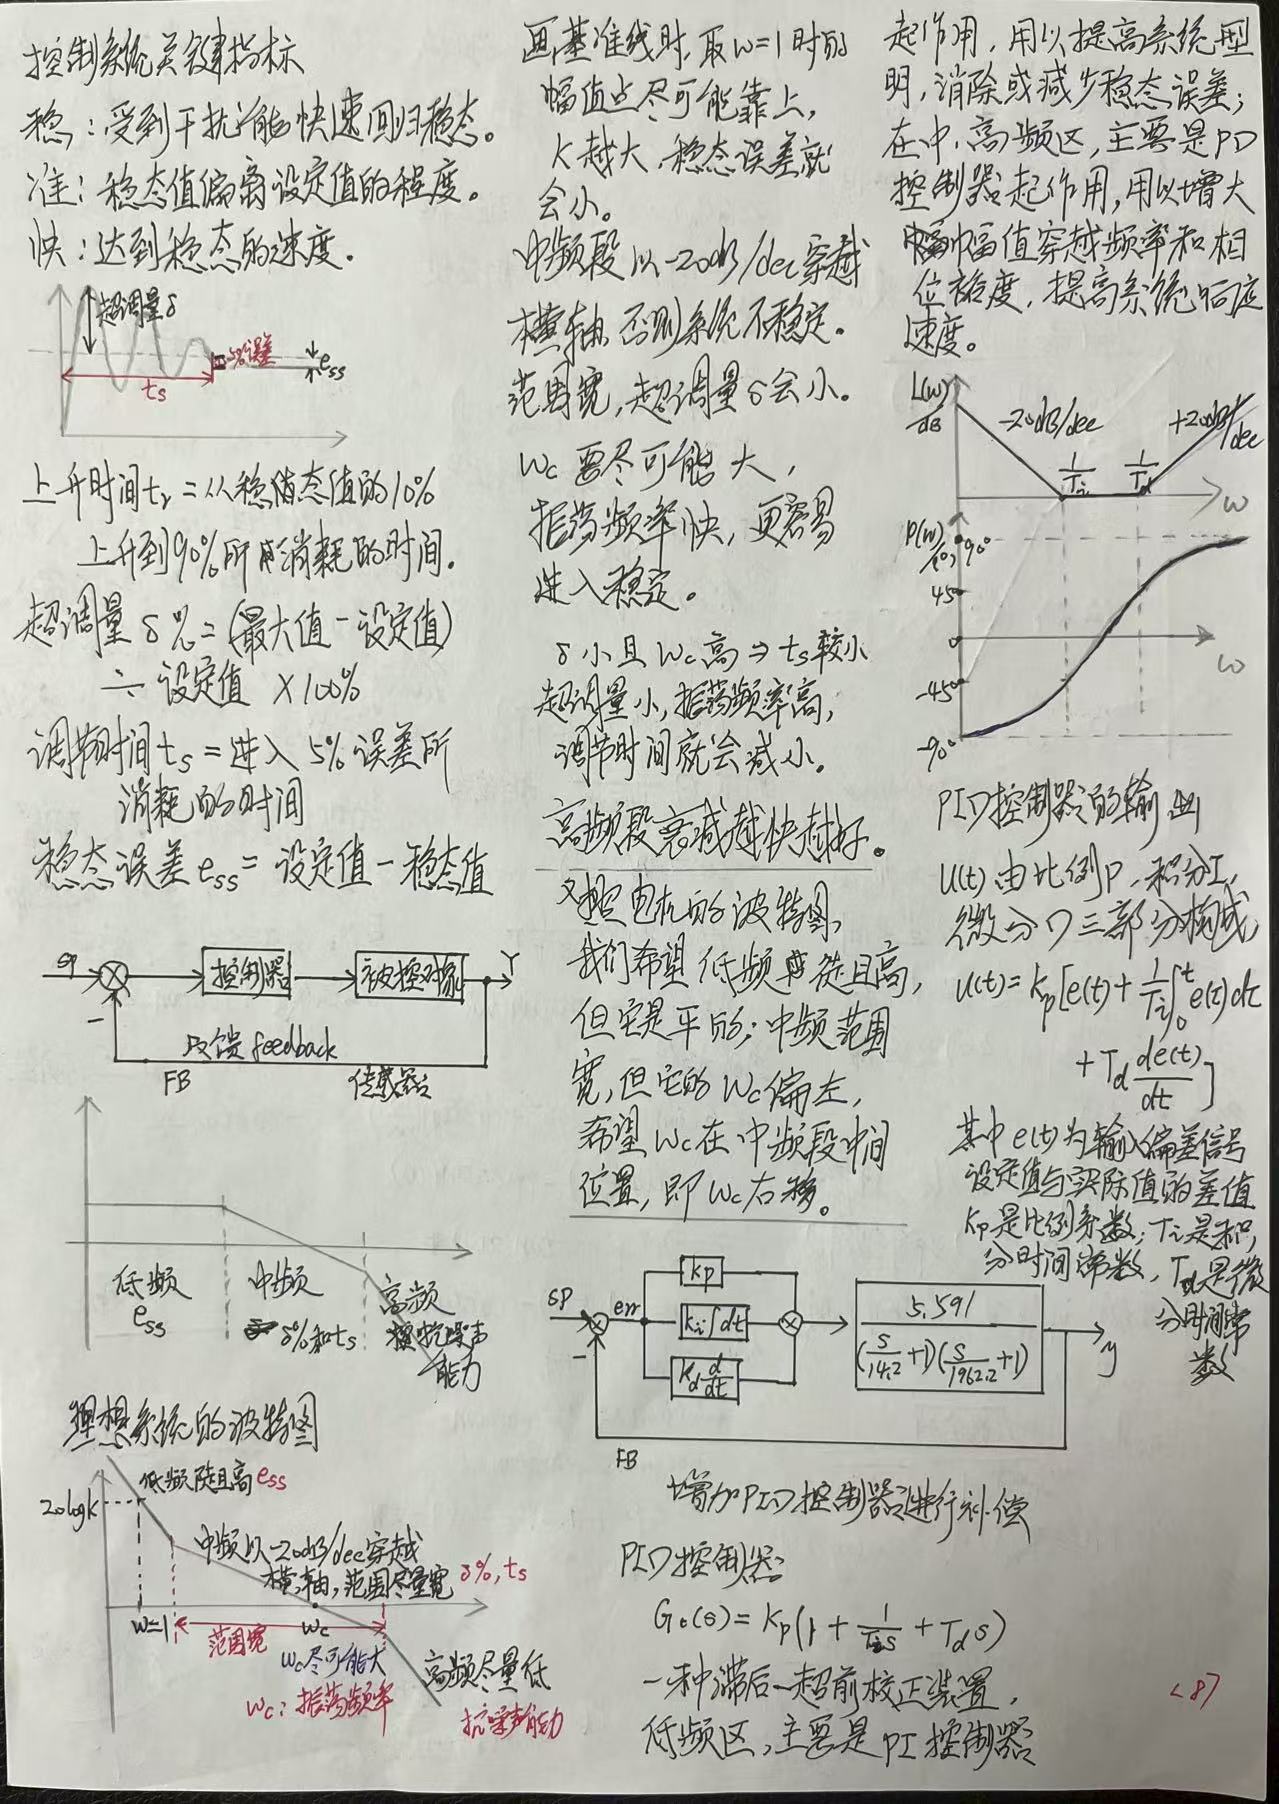 控制系统关键指标
稳:受到干扰后能快速回归稳态。
准:稳态值偏离设定值的程度。
快:达到稳态的速度.
超调量δ
5%误差
ess
ts
上升时间tr=从稳态值的10%
上升到90%所消耗的时间.
超调量δ%=(最大值-设定值)
÷设定值×100%
调节时间ts=进入5%误差所
消耗的时间
稳态误差ess=设定值-稳态值
SP
控制器
被控对象
Y
-
反馈feedback
FB
传感器
低频
ess
中频
δ%和ts
高频
抗噪声
能力
理想系统的波特图
低频陡且高ess
20logK
中频以-20dB/dec穿越
横轴,范围尽量宽 δ%,ts
w=1
范围宽
wc
wc尽可能大
wc:振荡频率
高频尽量低
抗噪声能力
画基准线时,取w=1时的
幅值点尽可能靠上,
K越大,稳态误差就
会小。
中频段以-20dB/dec穿越
横轴,否则系统不稳定。
范围宽,超调量δ会小。
wc要尽可能大,
振荡频率快,更容易
进入稳定。
δ小且wc高⇒ts较小
超调量小,振荡频率高,
调节时间就会减小。
高频段衰减越快越好。
对照电机的波特图,
我们希望低频陡且高,
但它是平的;中频范围
宽,但它的wc偏左,
希望wc在中频段中间
位置,即wc右移。
SP
err
kp
ki∫dt
kd d/dt
5.591
(s/14.2+1)(s/1962.2+1)
y
-
FB
增加PID控制器进行补偿
PID控制器
Gc(s)=Kp(1+1/Tis+Tds)
一种滞后-超前校正装置,
低频区,主要是PI控制器
起作用,用以提高系统型
明,消除或减少稳态误差;
在中,高频区,主要是PD
控制器起作用,用以增大
幅值穿越频率和相
位裕度,提高系统响应
速度。
L(w)/dB
-20dB/dec
+20dB/dec
1/Ti
1/Td
w
P(w)/(°)
90°
45°
0
w
-45°
-90°
PID控制器的输出
u(t)由比例P,积分I,
微分D三部分构成
u(t)=kp[e(t)+1/Ti∫0t e(t)dt
+Td de(t)/dt]
其中e(t)为输入偏差信号
设定值与实际值的差值
Kp是比例系数;Ti是积
分时间常数,Td是微
分时间常
数
<8>